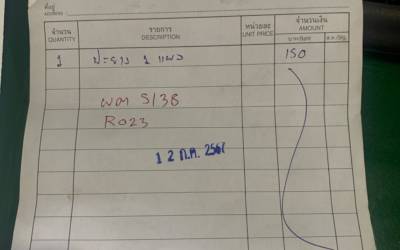 ที่อยู่
ADDRESS
จำนวน รายการ หน่วยละ จำนวนเงิน
QUANTITY DESCRIPTION UNIT PRICE AMOUNT
บาท/Baht ส.ต./Stg.
1 ปะยาง 1 แผล 150
ผตต 5/38
R023
12 ก.ค. 2567